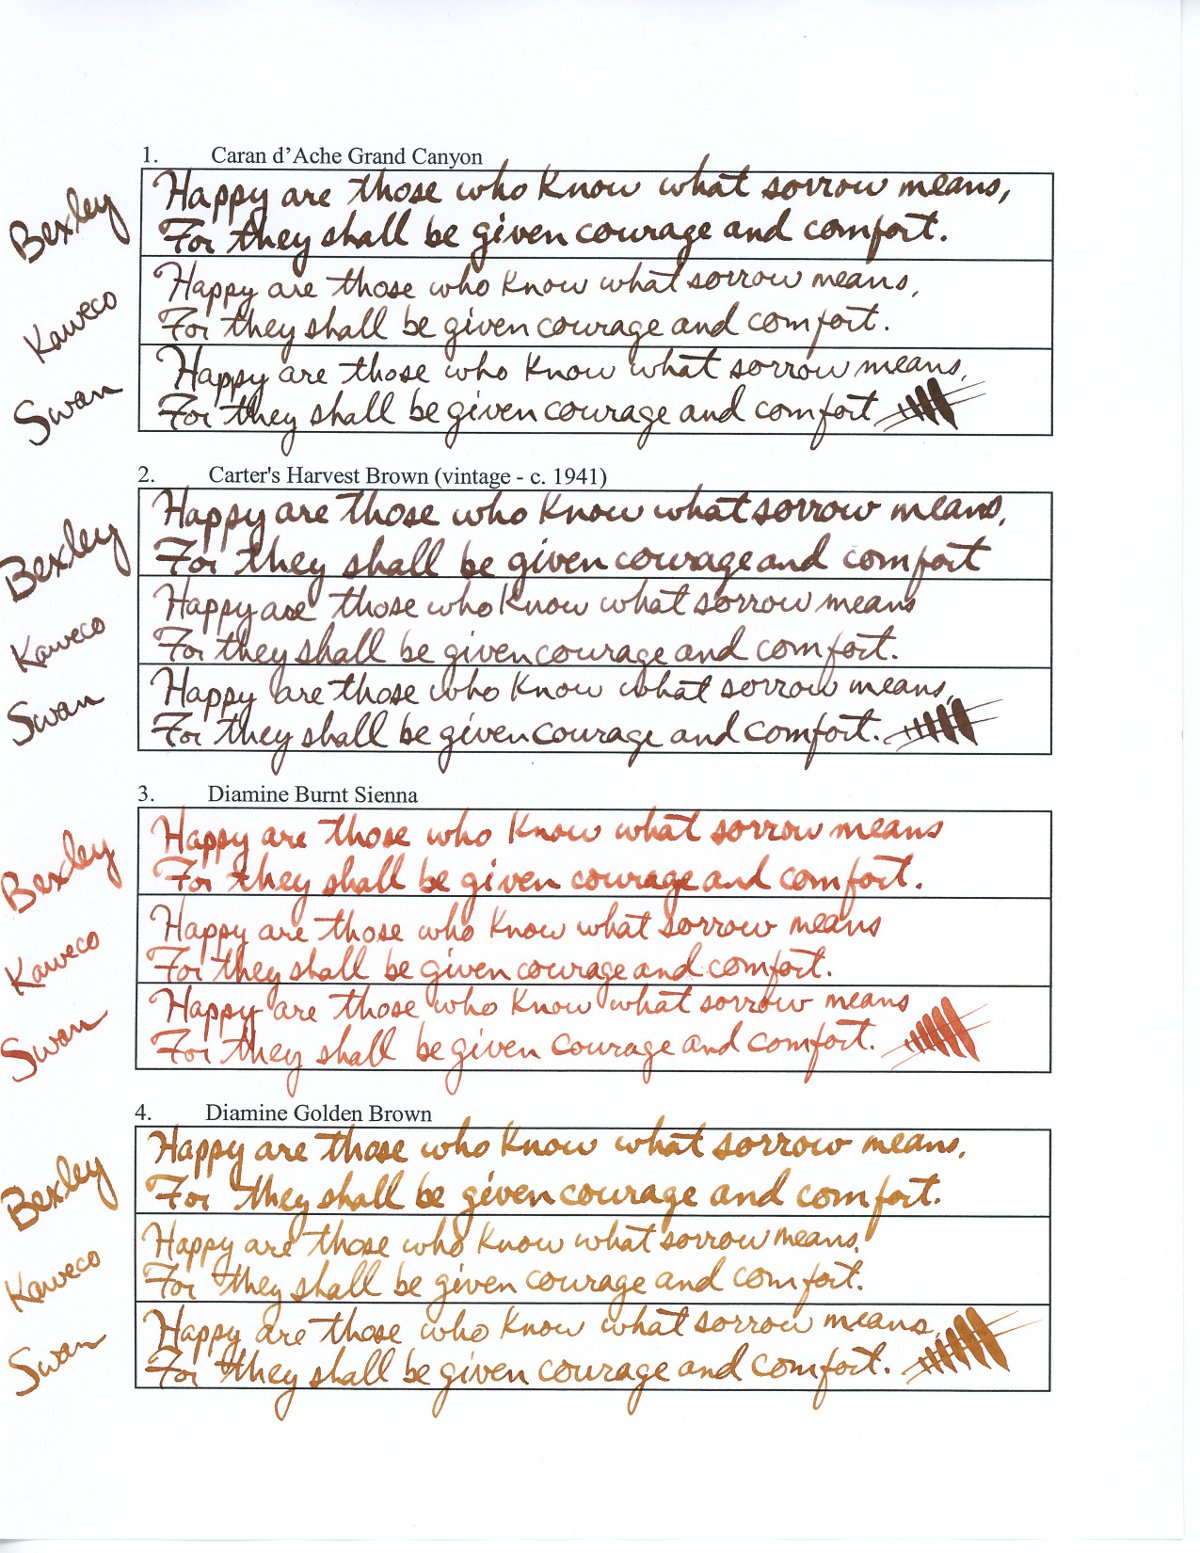 1. Caran d’Ache Grand Canyon
Bexley
Happy are those who know what sorrow means,
For they shall be given courage and comfort.
Kaweco
Happy are those who know what sorrow means,
For they shall be given courage and comfort.
Swan
Happy are those who know what sorrow means,
For they shall be given courage and comfort
2. Carter's Harvest Brown (vintage - c. 1941)
Bexley
Happy are those who know what sorrow means,
For they shall be given courage and comfort
Kaweco
Happy are those who know what sorrow means
For they shall be given courage and comfort.
Swan
Happy are those who know what sorrow means,
For they shall be given courage and comfort.
3. Diamine Burnt Sienna
Bexley
Happy are those who know what sorrow means
For they shall be given courage and comfort.
Kaweco
Happy are those who know what sorrow means
For they shall be given courage and comfort.
Swan
Happy are those who know what sorrow means
For they shall be given courage and comfort.
4. Diamine Golden Brown
Bexley
Happy are those who know what sorrow means,
For they shall be given courage and comfort.
Kaweco
Happy are those who know what sorrow means,
For they shall be given courage and comfort.
Swan
Happy are those who know what sorrow means,
For they shall be given courage and comfort.